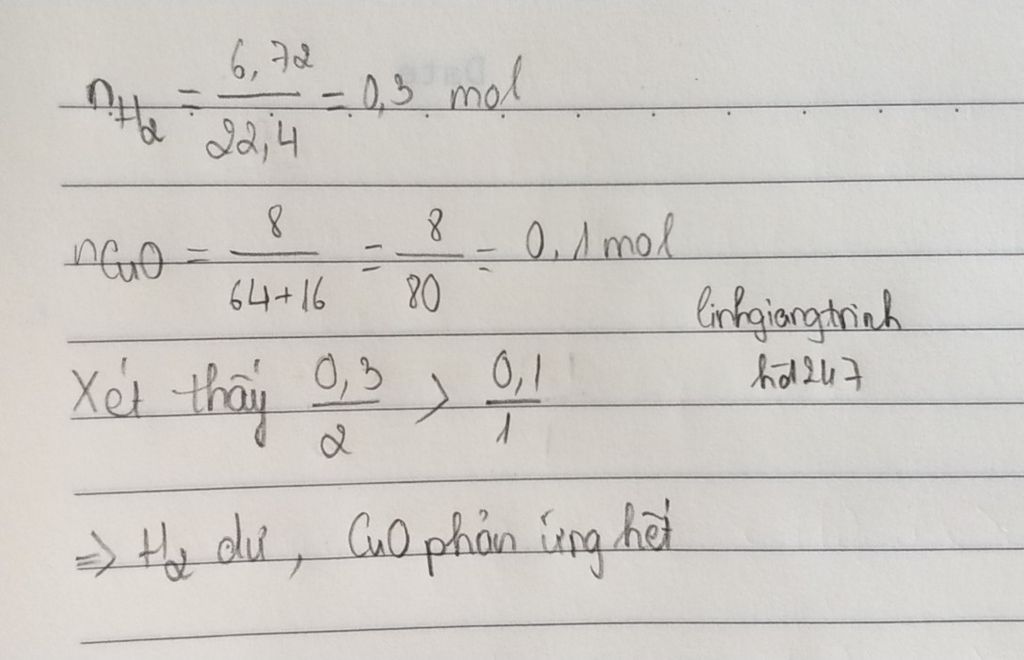 nH₂ = 6,72/22,4 = 0,3 mol
nCuO = 8/64+16 = 8/80 = 0,1 mol
linhgiangtrinh
hd247
Xét thấy 0,3/2 > 0,1/1
⇒ H₂ dư, CuO phản ứng hết